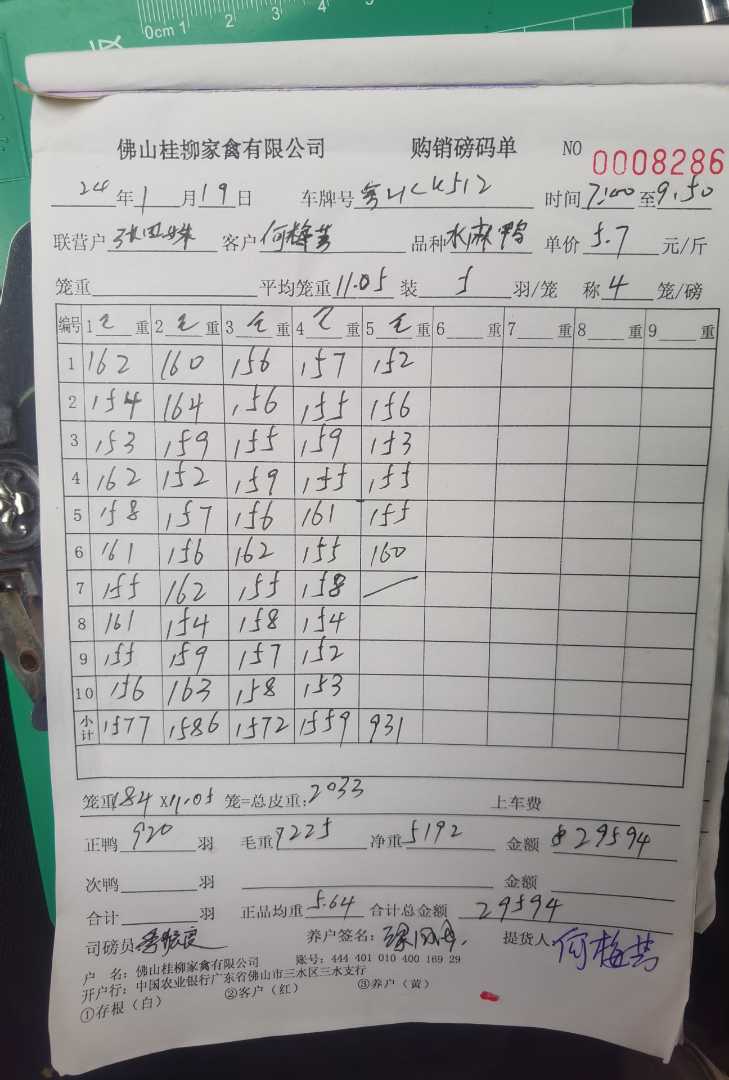 0cm 1 2 3 4
佛山桂柳家禽有限公司 购销磅码单 NO 0008286
24年1月19日 车牌号 时间7:00至9:50
联营户 客户何梅芳 品种水麻鸭 单价5.7元/斤
笼重 平均笼重11.05 装5羽/笼 称4笼/磅
编号 1毛重 2毛重 3毛重 4毛重 5毛重 6重 7重 8重 9重
1 162 160 156 157 152
2 154 164 156 155 156
3 153 159 155 159 153
4 162 152 159 155 155
5 158 157 156 161 155
6 161 156 162 155 160
7 155 162 155 158
8 161 154 158 154
9 155 159 157 152
10 156 163 158 153
小计 1577 1586 1572 1559 931
笼重184×11.05笼=总皮重:2033 上车费
正鸭920羽 毛重7225 净重5192 金额$29594
次鸭 羽 金额
合计 羽 正品均重5.64 合计总金额29594
司磅员 养户签名: 提货人何梅芳
户 名:佛山桂柳家禽有限公司 账号:444 401 010 400 169 29
开户行:中国农业银行广东省佛山市三水区三水支行
①存根(白) ②客户(红) ③养户(黄)